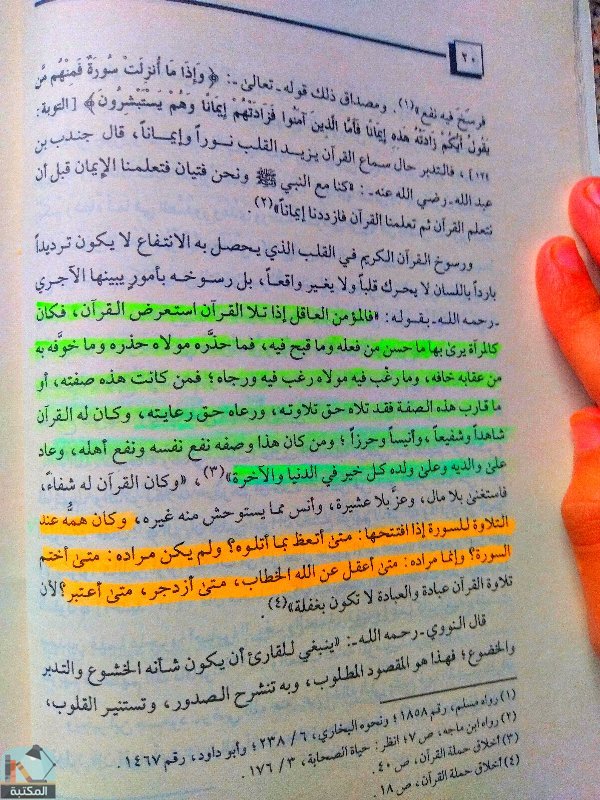 ٢٠
فرسَخَ فيه نفع»(١). ومصداق ذلك قوله ـ تعالىٰ ـ: ﴿وَإِذَا مَا أُنزِلَتْ سُورَةٌ فَمِنْهُم مَّن
يَقُولُ أَيُّكُمْ زَادَتْهُ هَذِهِ إِيمَانًا فَأَمَّا الَّذِينَ آمَنُوا فَزَادَتْهُمْ إِيمَانًا وَهُمْ يَسْتَبْشِرُونَ﴾ [التوبة:
١٢٤]، فالتدبر حال سماع القرآن يزيد القلب نوراً وإيماناً، قال جندب بن
عبد الله ـ رضي الله عنه ـ: «كنا مع النبي ﷺ ونحن فتيان فتعلمنا الإيمان قبل أن
نتعلم القرآن ثم تعلمنا القرآن فازددنا إيماناً»(٢).
ورسوخ القرآن الكريم في القلب الذي يحصل به الانتفاع لا يكون ترديداً
بارداً باللسان لا يحرك قلباً ولا يغير واقعاً، بل رسوخه بأمورٍ يبينها الآجري
ـ رحمه الله ـ بقوله: «فالمؤمن العاقل إذا تلا القرآن استعرض القرآن، فكان
كالمرآة يرىٰ بها ما حسن من فعله وما قبح فيه، فما حذَّره مولاه حذره وما خوَّفه به
من عقابه خافه، وما رغَّب فيه مولاه رغب فيه ورجاه؛ فمن كانت هذه صفته، أو
ما قارب هذه الصفة فقد تلاه حق تلاوته، ورعاه حق رعايته، وكان له القرآن
شاهداً وشفيعاً، وأنيساً وحرزاً؛ ومن كان هذا وصفه نفع نفسه ونفع أهله، وعاد
علىٰ والديه وعلىٰ ولده كل خير في الدنيا والآخرة»(٣)، «وكان القرآن له شفاءً،
فاستغنىٰ بلا مال، وعزَّ بلا عشيرة، وأنس مما يستوحش منه غيره، وكان همُّه عند
التلاوة للسورة إذا افتتحها: متىٰ أتعظ بما أتلوه؟ ولم يكن مراده: متىٰ أختم
السورة؟ وإنما مراده: متىٰ أعقل عن الله الخطاب، متىٰ أزدجر، متىٰ أعتبر؟ لأن
تلاوة القرآن عبادة والعبادة لا تكون بغفلة»(٤).
قال النووي ـ رحمه الله ـ: «ينبغي للقارئ أن يكون شأنه الخشوع والتدبر
والخضوع؛ فهذا هو المقصود المطلوب، وبه تنشرح الصدور، وتستنير القلوب،
(١) رواه مسلم، رقم ١٨٥٨؛ ونحوه البخاري، ٦ / ٢٣٨؛ وأبو داود، رقم ١٤٦٧.
(٢) رواه ابن ماجه، ص ٧؛ انظر: حياة الصحابة، ٣ / ١٧٦.
(٣) أخلاق حملة القرآن، ص ٤٠.
(٤) أخلاق حملة القرآن، ص ١٨.
المكتبة